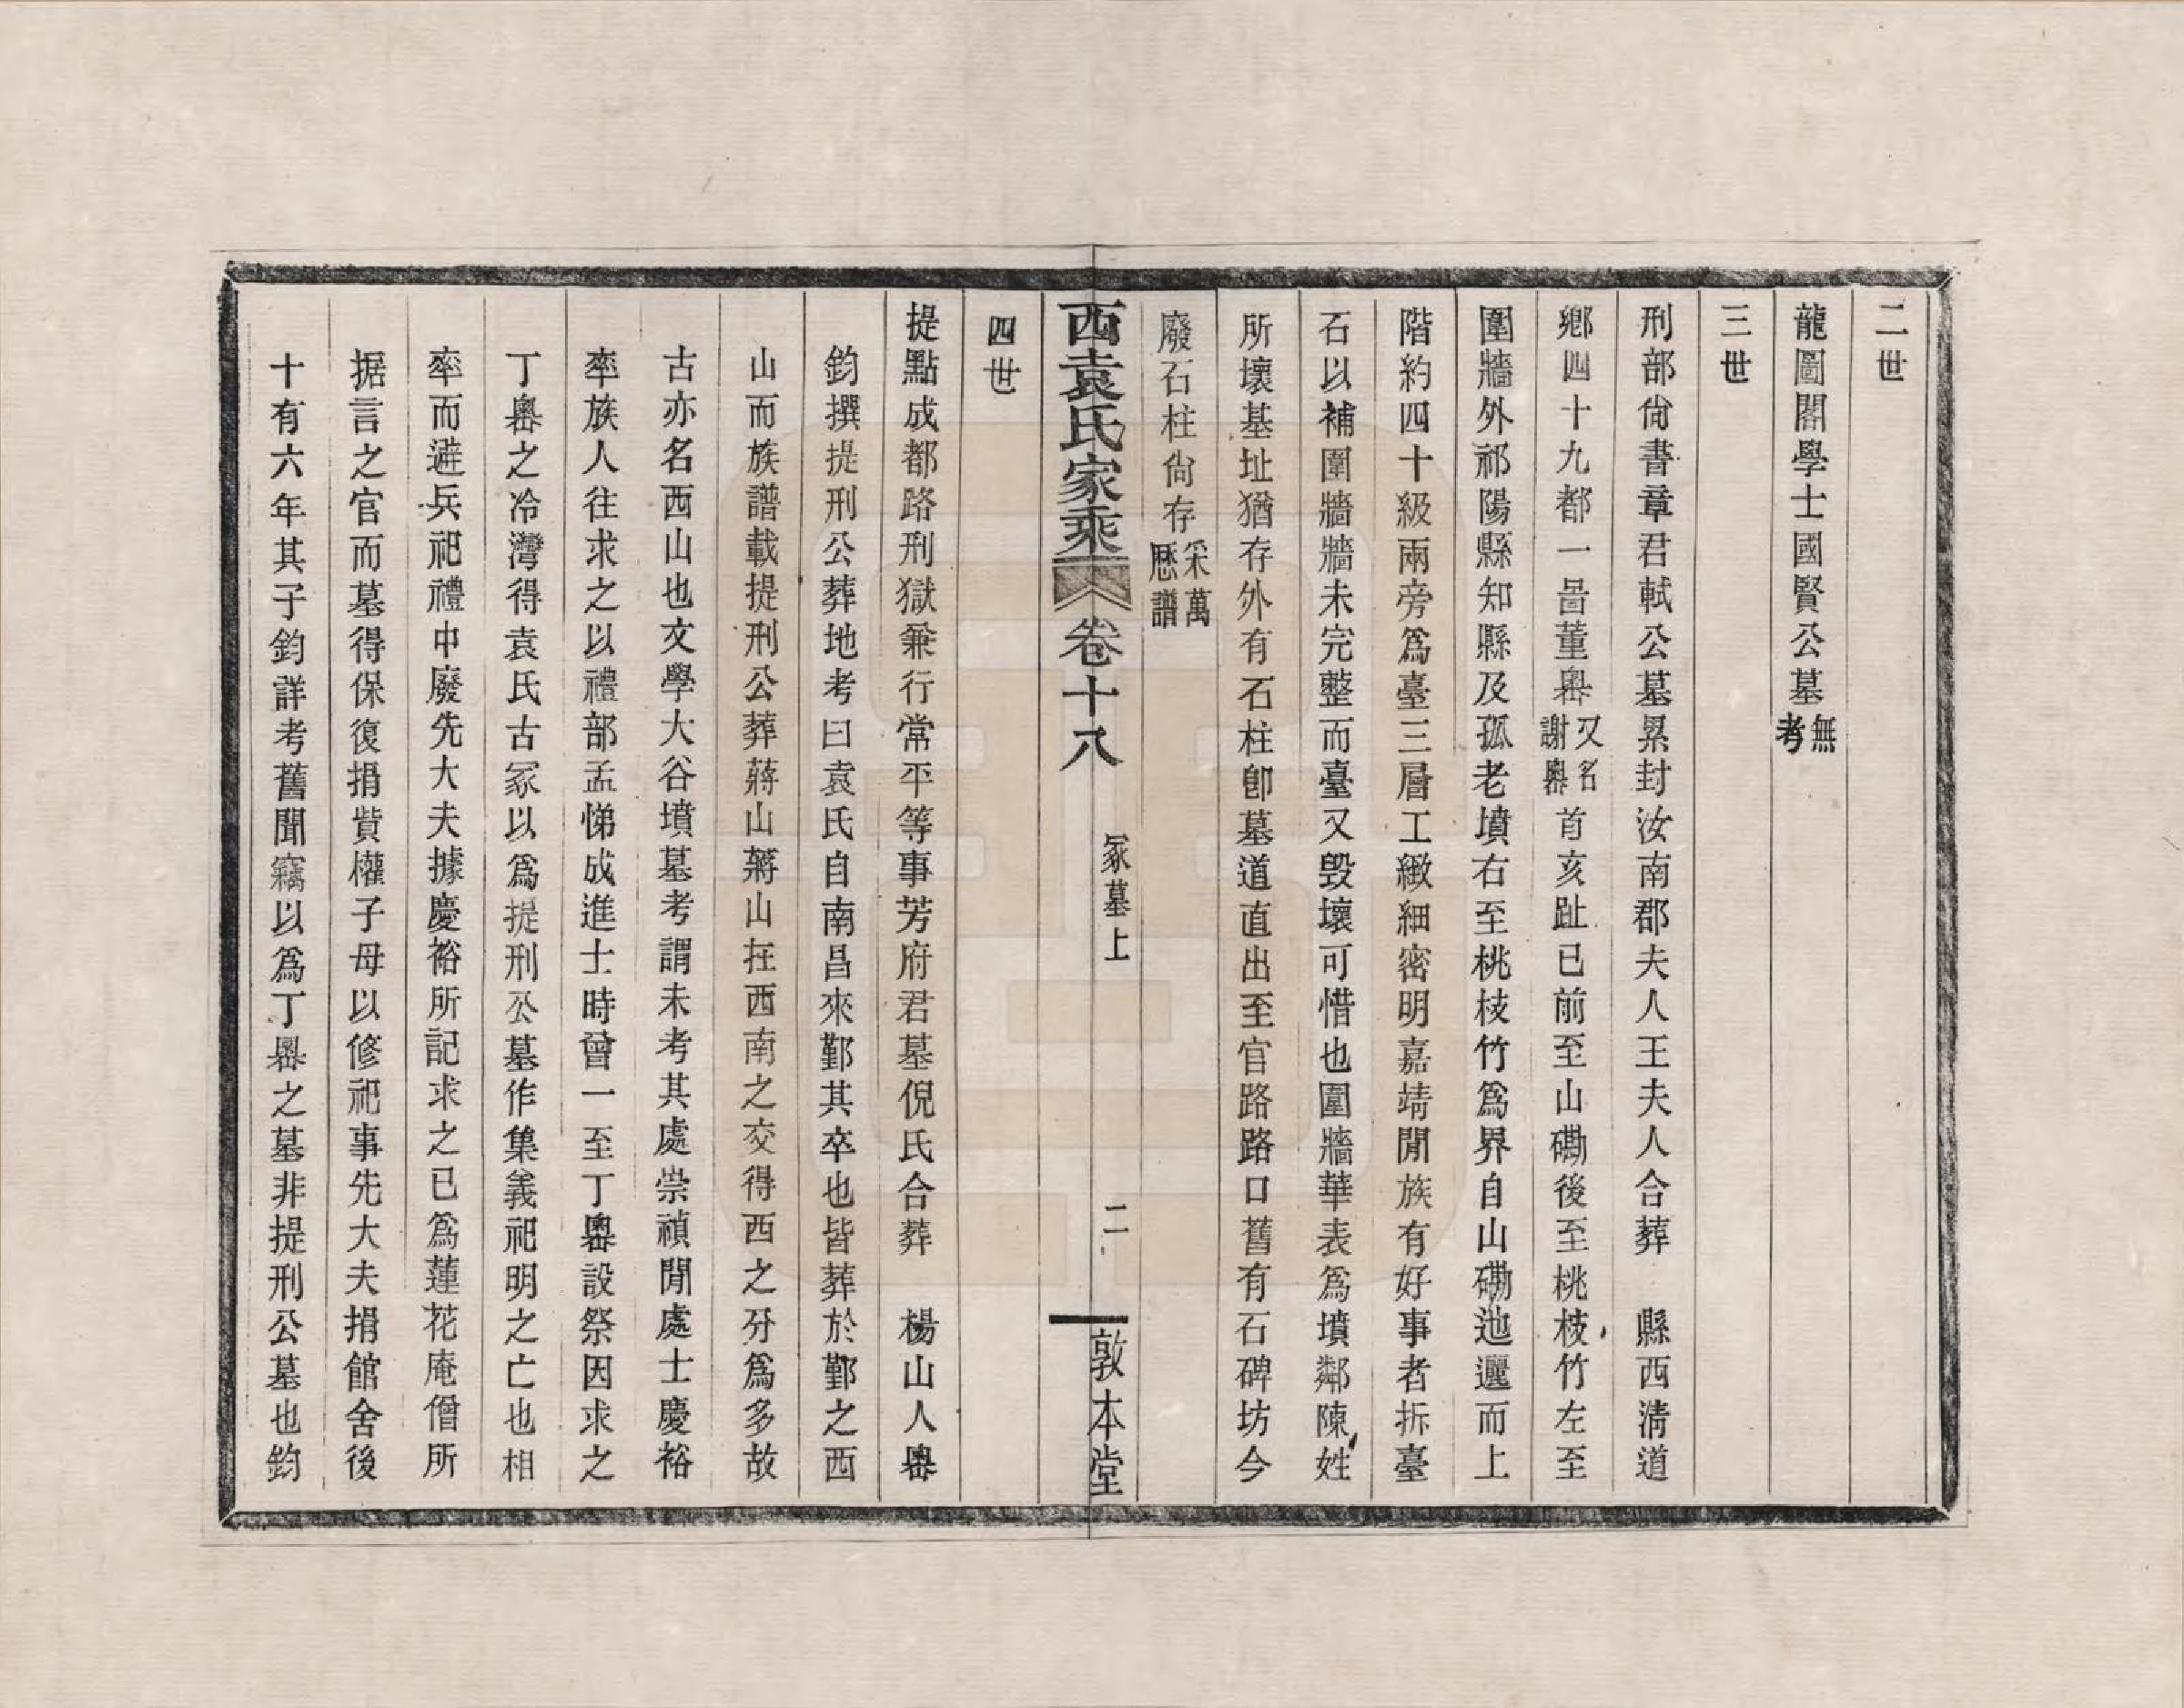 二世
龍圖閣學士國賢公墓無考
三世
刑部尙書章君軾公墓累封汝南郡夫人王夫人合葬　縣西淸道
鄉四十九都一啚董嶴又名謝嶴首亥趾巳前至山磡後至桃枝竹左至
圍牆外祁陽縣知縣及孤老墳右至桃枝竹爲界自山磡迆邐而上
階約四十級兩旁爲臺三層工緻細密明嘉靖閒族有好事者拆臺
石以補圍牆牆未完整而臺又毀壞可惜也圍牆華表爲墳鄰陳姓
所壞基址猶存外有石柱卽墓道直出至官路路口舊有石碑坊今
廢石柱尙存采萬厯譜
西袁氏家乘　卷十八　冢墓上　二　敦本堂
四世
提點成都路刑獄兼行常平等事芳府君墓倪氏合葬　楊山人嶴
鈞撰提刑公葬地考曰袁氏自南昌來鄞其卒也皆葬於鄞之西
山而族譜載提刑公葬蔣山蔣山在西南之交得西之分爲多故
古亦名西山也文學大谷墳墓考謂未考其處崇禎閒處士慶裕
率族人往求之以禮部孟悌成進士時曾一至丁嶴設祭因求之
丁嶴之冷灣得袁氏古冢以爲提刑公墓作集義祀明之亡也相
率而避兵祀禮中廢先大夫據慶裕所記求之已爲蓮花庵僧所
据言之官而墓得保復捐貲權子母以修祀事先大夫捐館舍後
十有六年其子鈞詳考舊聞竊以爲丁嶴之墓非提刑公墓也鈞